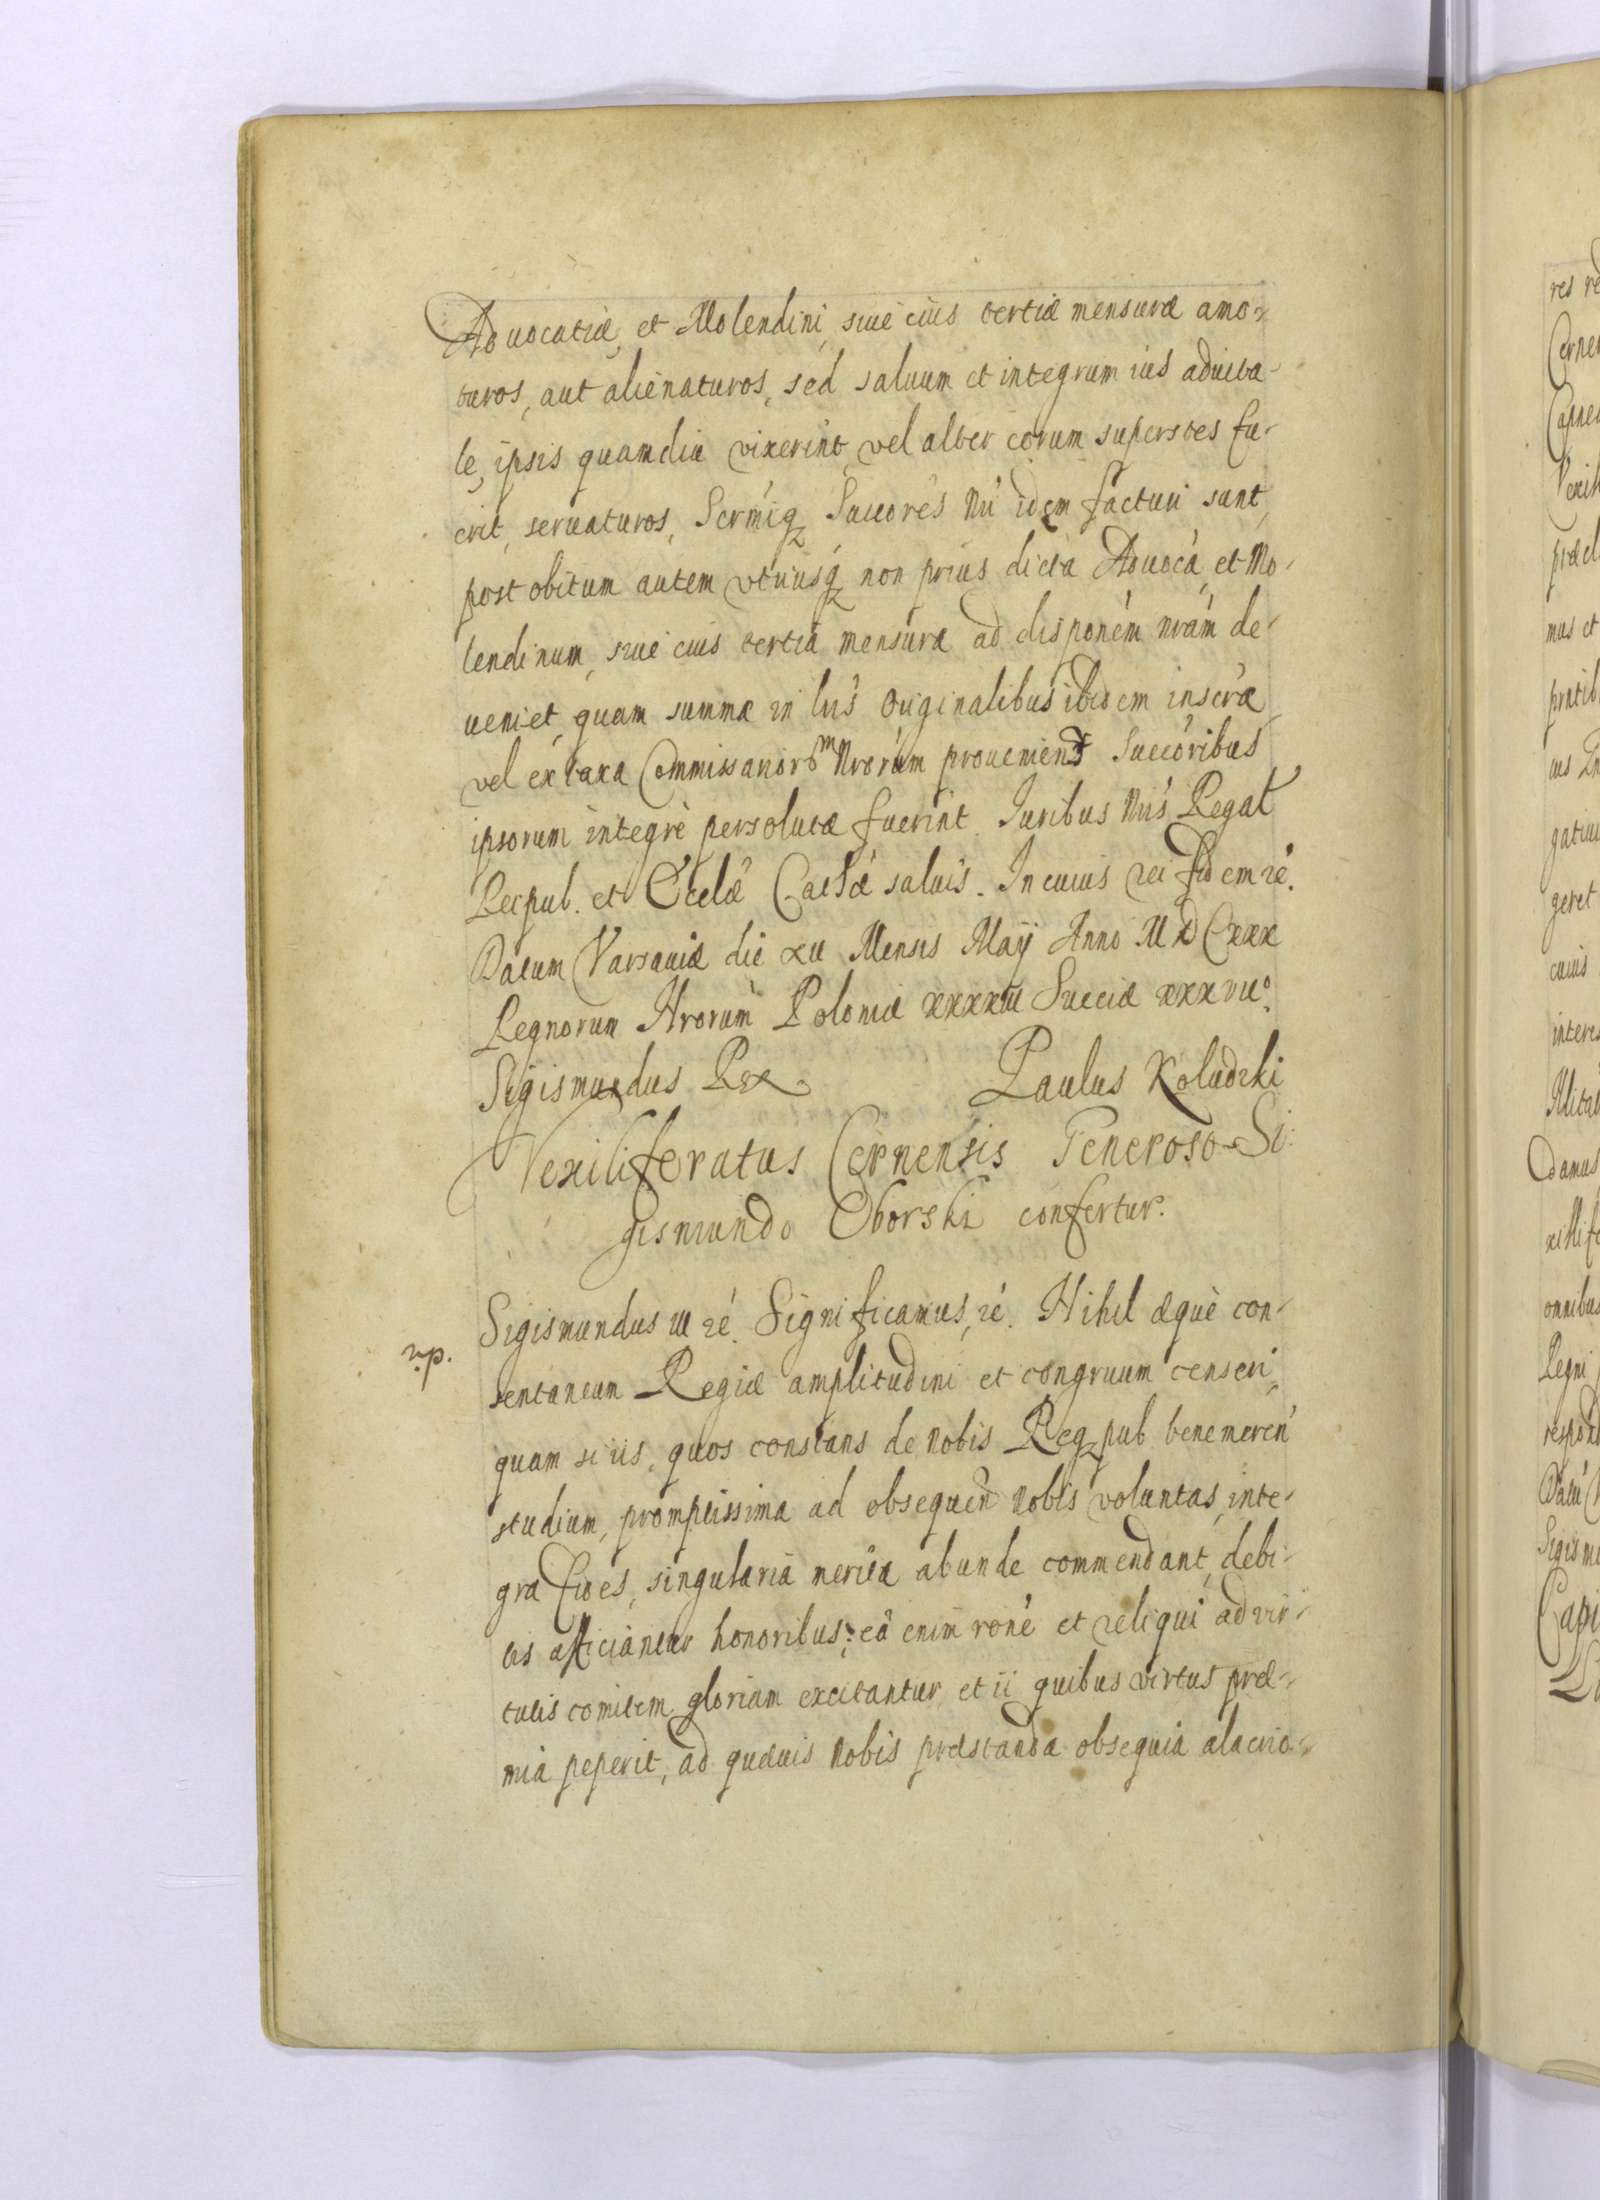 Aduocatiæ, et Molendini, siue eius tertiæ mensuræ amo-
turos, aut alienaturos, sed saluum et integrum ius aduita-
le, ipsis quamdiu vixerint vel alter eorum superstes fu-
erit, seruaturos, Sermiq Succores Nri idem facturi sunt,
post obitum autem vtriusq non prius dicta Aduoca, et Mo-
lendinum, siue eius tertia mensura ad disponem nram de-
ueniet, quam summæ in lris Originalibus ibidem insertæ
vel ex taxa Commissariorm Nrorum prouenient Succoribus
ipsorum integrè persolutæ fuerint. Iuribus Nris Regal
Reipub. et Eccliæ Cathcæ saluis. In cuius rei fidem ré.
Datum Varsauiæ die xv Mensis Maÿ Anno MDCxxx
Regnorum Nrorum Poloniæ xxxxiii Sueciæ xxxvii°
Sigismundus Rex Paulus Koludzki
Vexiliferatus Cernensis Generoso Si
gismundo Oborski confertur.
Sigismundus III ré. Significamus, ré. Nihil æquè con-
r.p.
sentaneum Regiæ amplitudini et congruum censeri,
quam si iis, quos constans de nobis Reqpub benemeren
studium, promptissima ad obsequen nobis voluntas, inte-
gra fides, singularia merita abunde commendant, debi-
tis afficiantur honoribus; eâ enim roné et reliqui ad vir-
tutis comitem gloriam excitantur, et ii quibus virtus præ-
mia peperit, ad quæuis nobis præstanda obsequia alacrio-
res re
Cerne
mus et
geret
cuius
interes
damus
omnibus
Regni
Sigism
Capi